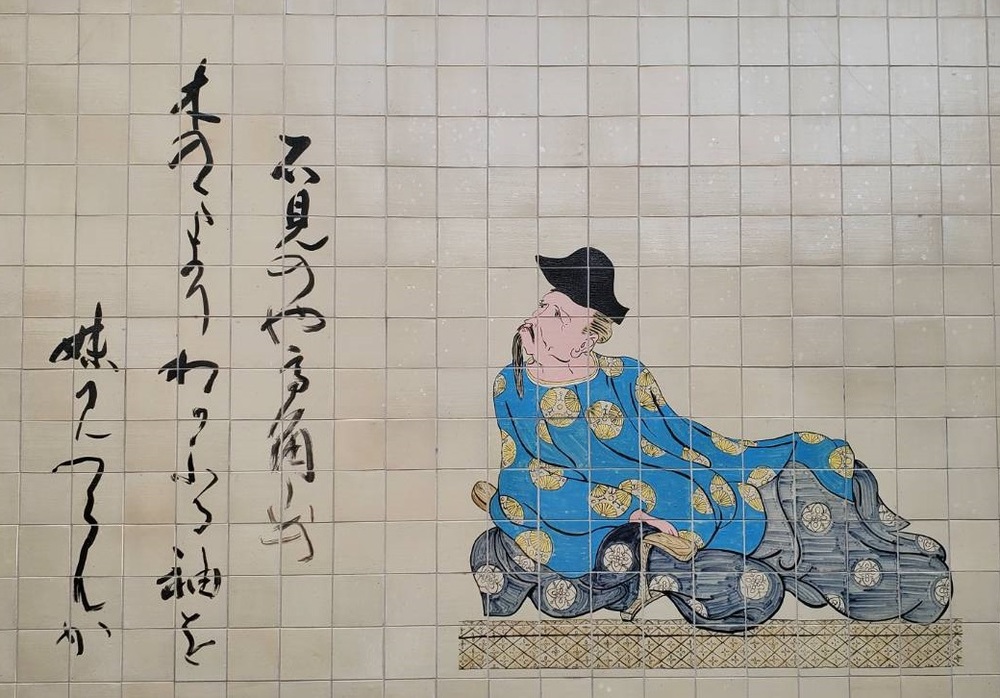 石見のや高角山
木のまよりわかふる袖を
妹見つらんか